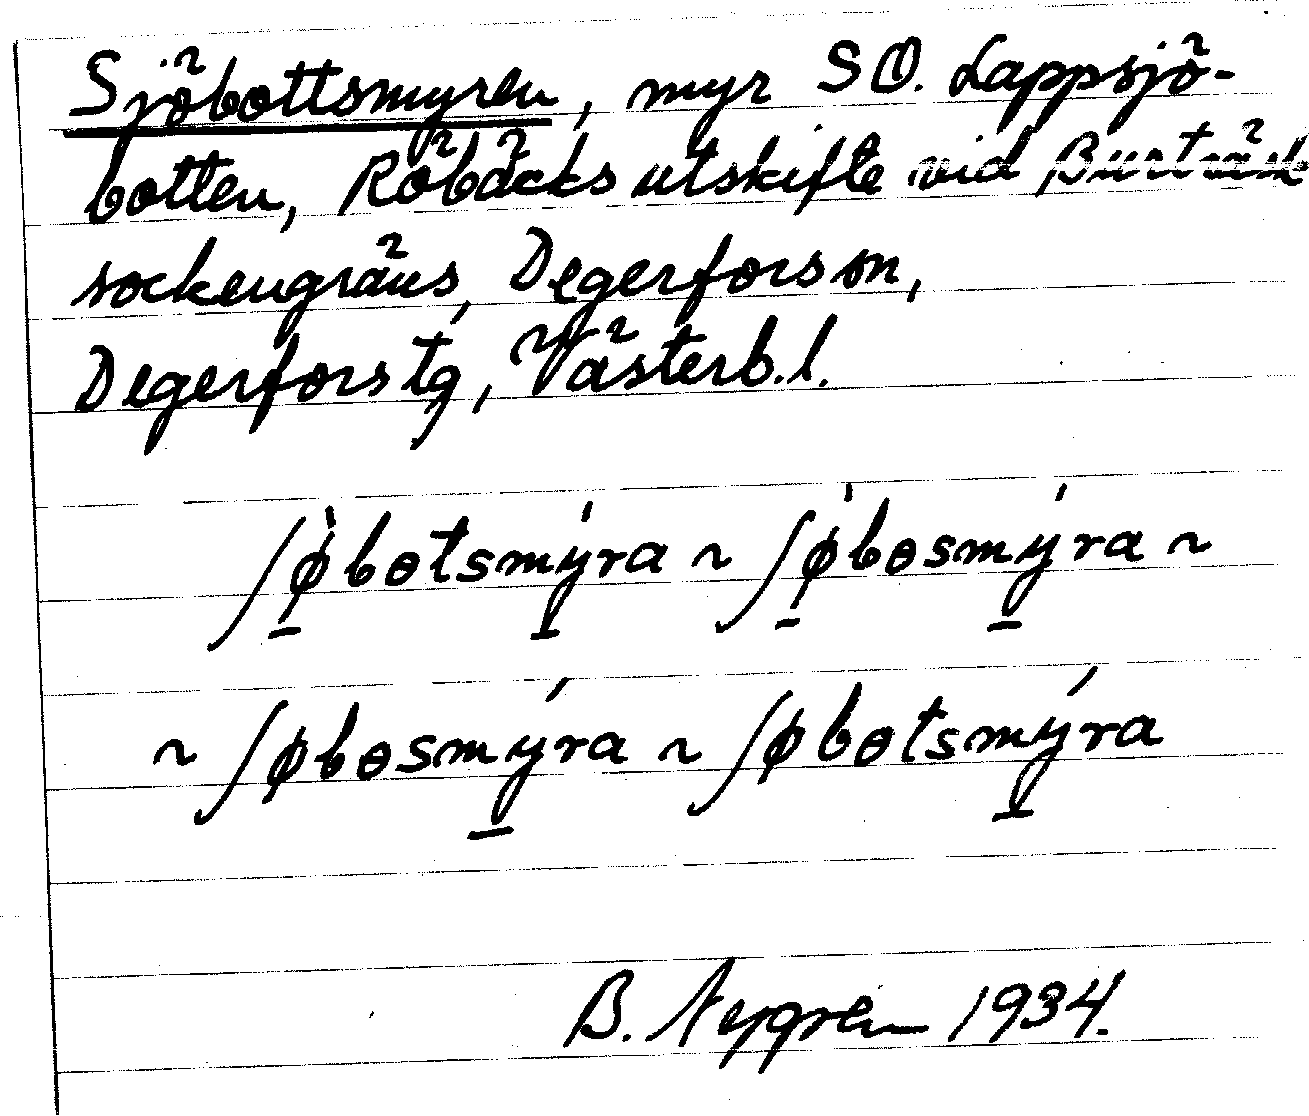 Sjöbottsmyren, myr SO. Lappsjö-
botten, Röbäcks utskifte vid Burträsk
sockengräns, Degerforsson,
Degerfors tg, Västerb.l.
ʃø̀bɵtsmýra ~ ʃø̀bɵsmýra ~
~ ʃøbɵsmýra ~ ʃøbɵtsmýra
B. Nygren 1934.